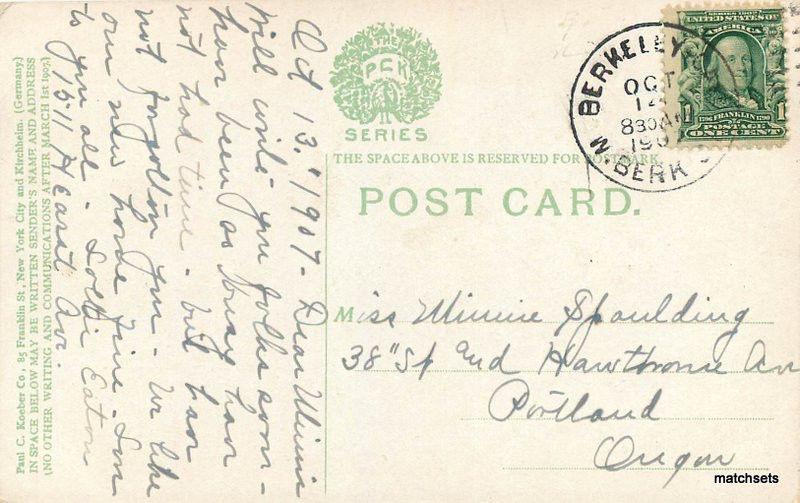 Oct 13, 1907 - Dear Minnie
Will write you folks soon -
have been so busy have
not had time - but have
not forgotten you - We like
our new home fine - Love
to you all - Lottie Eaton
1511 Hearst Av.
Paul C. Koeber Co., 85 Franklin St., New York City and Kirchheim. (Germany)
IN SPACE BELOW MAY BE WRITTEN SENDER'S NAME AND ADDRESS
(NO OTHER WRITING AND COMMUNICATIONS AFTER MARCH 1st 1907.)
THE
PCK
SERIES
THE SPACE ABOVE IS RESERVED FOR POSTMARK.
POST CARD.
BERKELEY
OCT
14
830AM
190
W. BERK
SERIES 1902
UNITED STATES OF
AMERICA
1706 FRANKLIN 1790
POSTAGE
1 1
ONE CENT
Miss Minnie Spaulding
38" St and Hawthorne Av
Portland
Oregon
matchsets